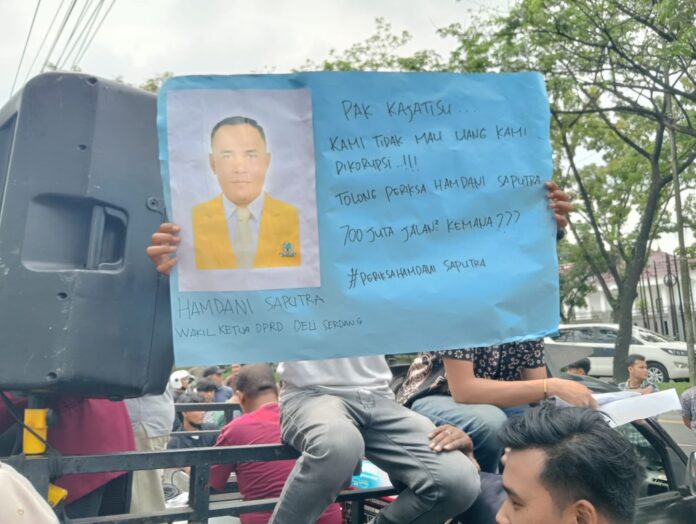 PAK KAJATISU...
KAMI TIDAK MAU UANG KAMI
DIKORUPSI..!!!
TOLONG PERIKSA HAMDANI SAPUTRA
700 JUTA JALAN² KEMANA???
#PERIKSAHAMDANI SAPUTRA
HAMDANI SAPUTRA
WAKIL KETUA DPRD DELI SERDANG